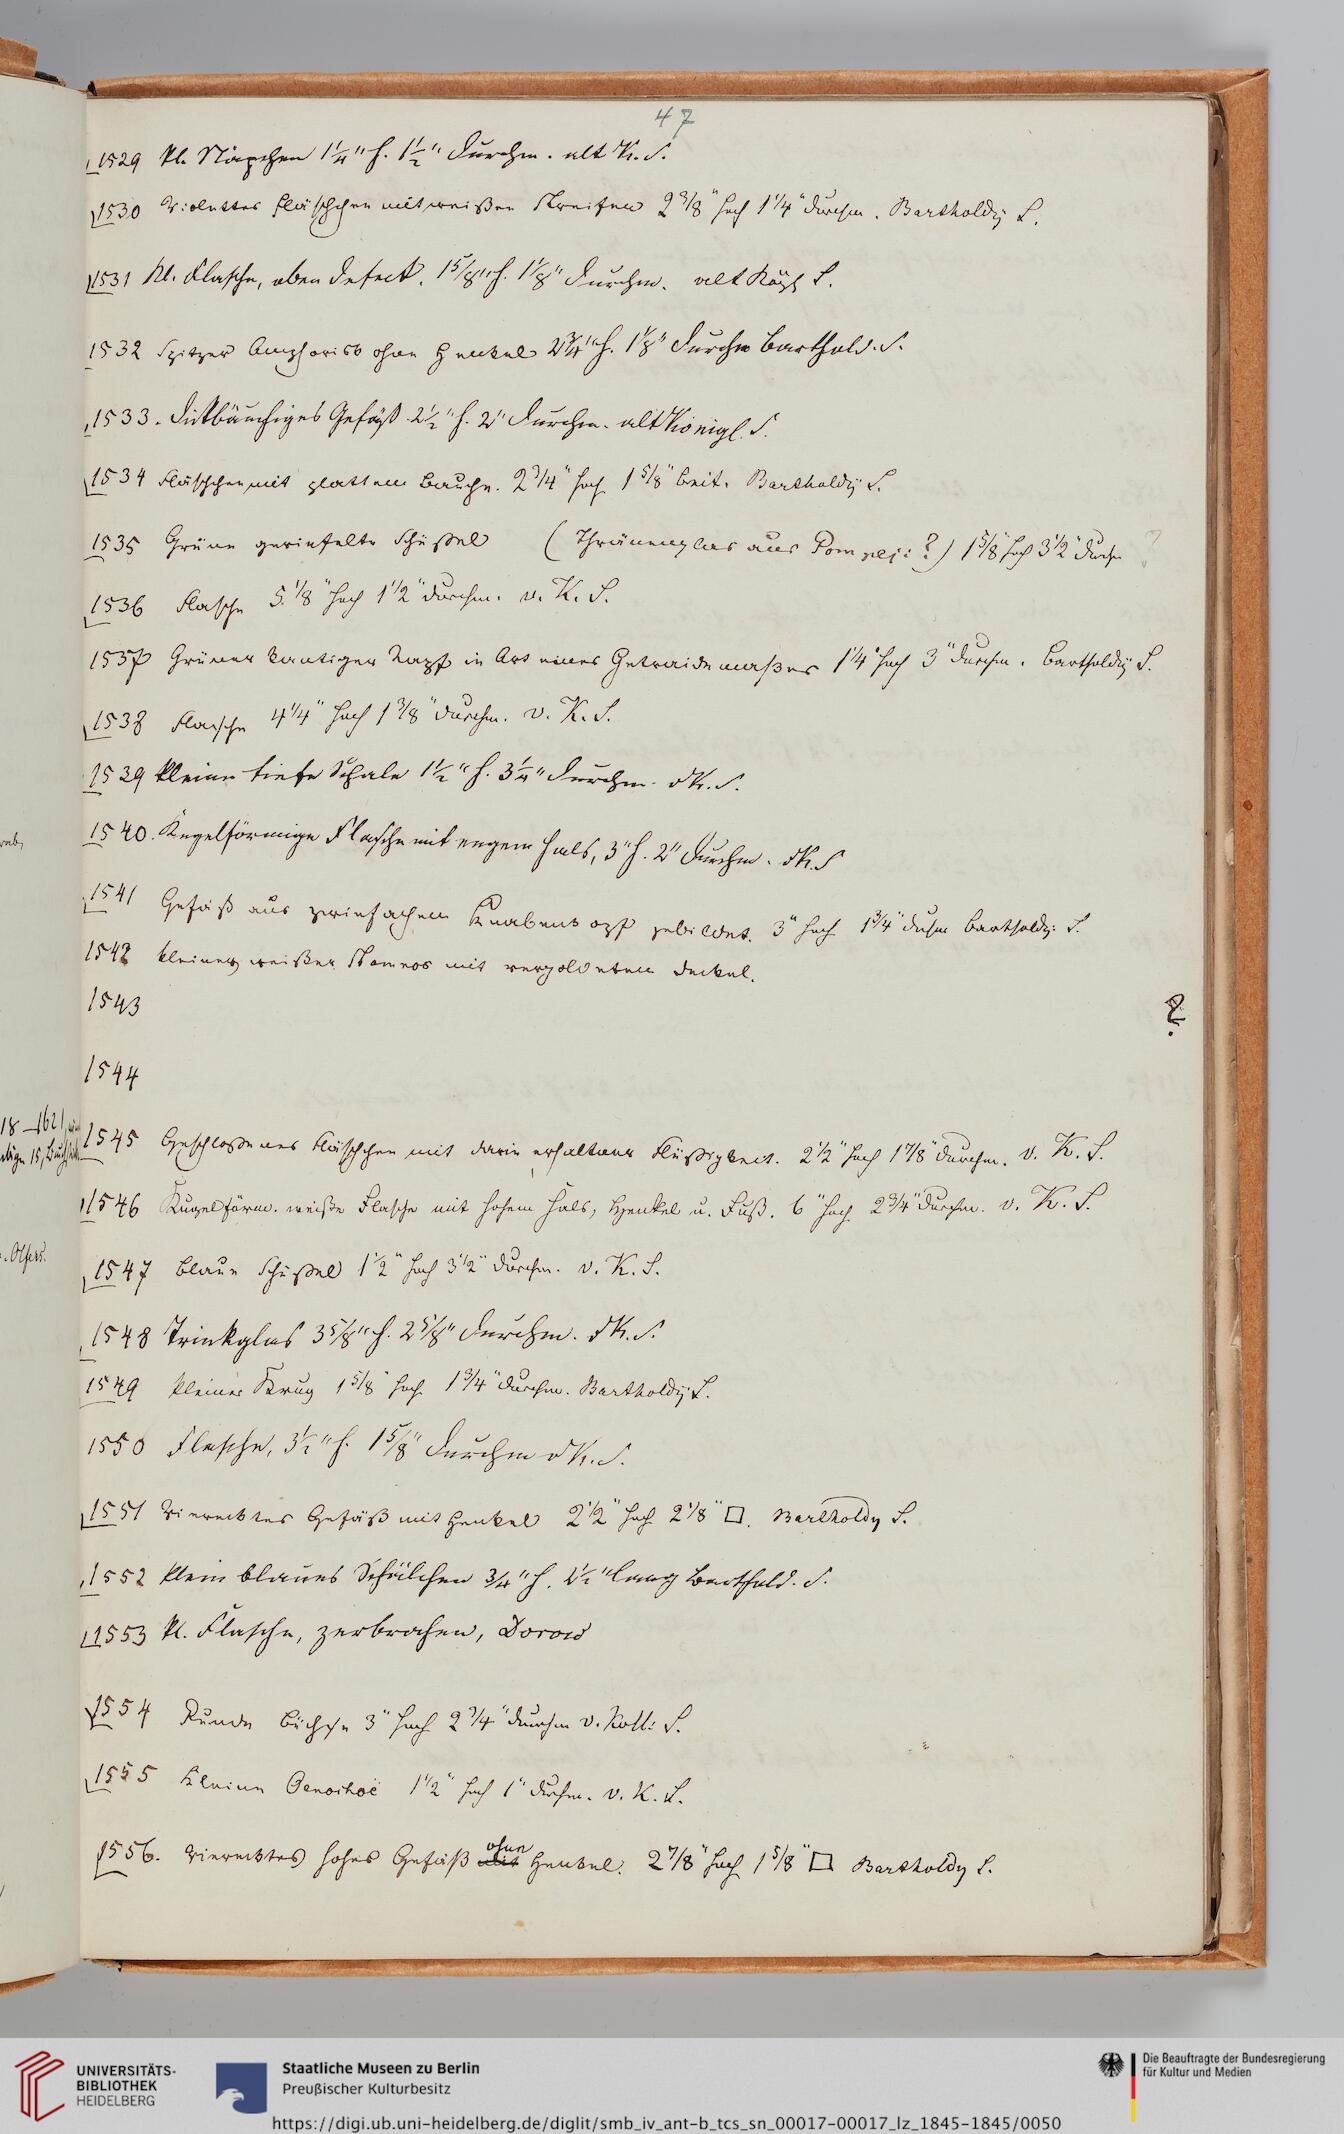 47
1529 kl. Näpchen 1¼" h. 1½" Durchm. alt K. S.
1530 Violettes Fläschchen mit weißen Streifen 2 3/8" hoch 1 1/4" Durchm. Bartholdy S.
1531 Kl. Flasche, oben defect. 1 5/8" h. 1 1/8" Durchm. alt S.
1532 Spitzer ohne Henkel h. 1 1/8" Durchm Barthold. S.
1533. Dickbäuchiges Gefäß 2½" h. 2" Durchm. alt Königl. S.
1534 Fläschchen mit plattem Bauche. 2 3/4" hoch 1 5/8" breit. Bartholdy S.
1535 Grüne geriefelte Schüßel (Thränenglas aus Pompeji?) 1 5/8" hoch 3 1/2" Durchm ?
1536 Flasche 5 1/8" hoch 1 1/2" Durchm. v. K. S.
1537 Grüner kantiger Napf in Art eines Getraidemaßes 1 1/4" hoch 3" Durchm. Bartholdy S.
1538 Flasche 4 1/4" hoch 1 3/8" Durchm. v. K. S.
1539 kleine tiefe Schale 1½" h. 3¼" Durchm. K. S.
1540. Kegelförmige Flasche mit engem Hals, 3" h. 2" Durchm. K. S
1541 Gefäß aus zwiefachem Knabenkopf gebildet. 3" hoch 1 3/4" Durchm Bartholdy S.
1542 kleiner weißer Stamnos mit vergoldetem Deckel.
1543 ?
1544
18–1621
1545 Geschloßenes Fläschchen mit darin erhaltener Flüßigkeit. 2 1/2" hoch 1 7/8" Durchm. v. K. S.
1546 Kugelförm. weiße Flasche mit hohem Hals, Henkel u. Fuß. 6" hoch 2 3/4" Durchm. v. K. S.
v. Olfers.
1547 Blaue Schüßel 1 1/2" hoch 3 1/2" Durchm. v. K. S.
1548 Trinkglas 3 5/8" h. 2 5/8" Durchm. K. S.
1549 kleiner Krug 1 5/8" hoch 1 3/4" Durchm. Bartholdy S.
1550 Flasche, 3½" h. 1 5/8" Durchm K. S.
1551 Vierecktes Gefäß mit Henkel 2 1/2" hoch 2 1/8" □. Bartholdy S.
1552 klein blaues Schälchen 3/4" h. lang Barthold. S.
1553 kl. Flasche, zerbrochen, Dorow
1554 Runde Büchse 3" hoch 2 3/4" Durchm v. Koll: S.
1555 Kleine Oenochoë 1 1/2" hoch 1" Durchm. v. K. S.
1556. Vierecktes hohes Gefäß ohne mit Henkel. 2 7/8" hoch 1 5/8" □ Bartholdy S.
UNIVERSITÄTS-
BIBLIOTHEK
HEIDELBERG
Staatliche Museen zu Berlin
Preußischer Kulturbesitz
https://digi.ub.uni-heidelberg.de/diglit/smb_iv_ant-b_tcs_sn_00017-00017_lz_1845-1845/0050
Die Beauftragte der Bundesregierung
für Kultur und Medien